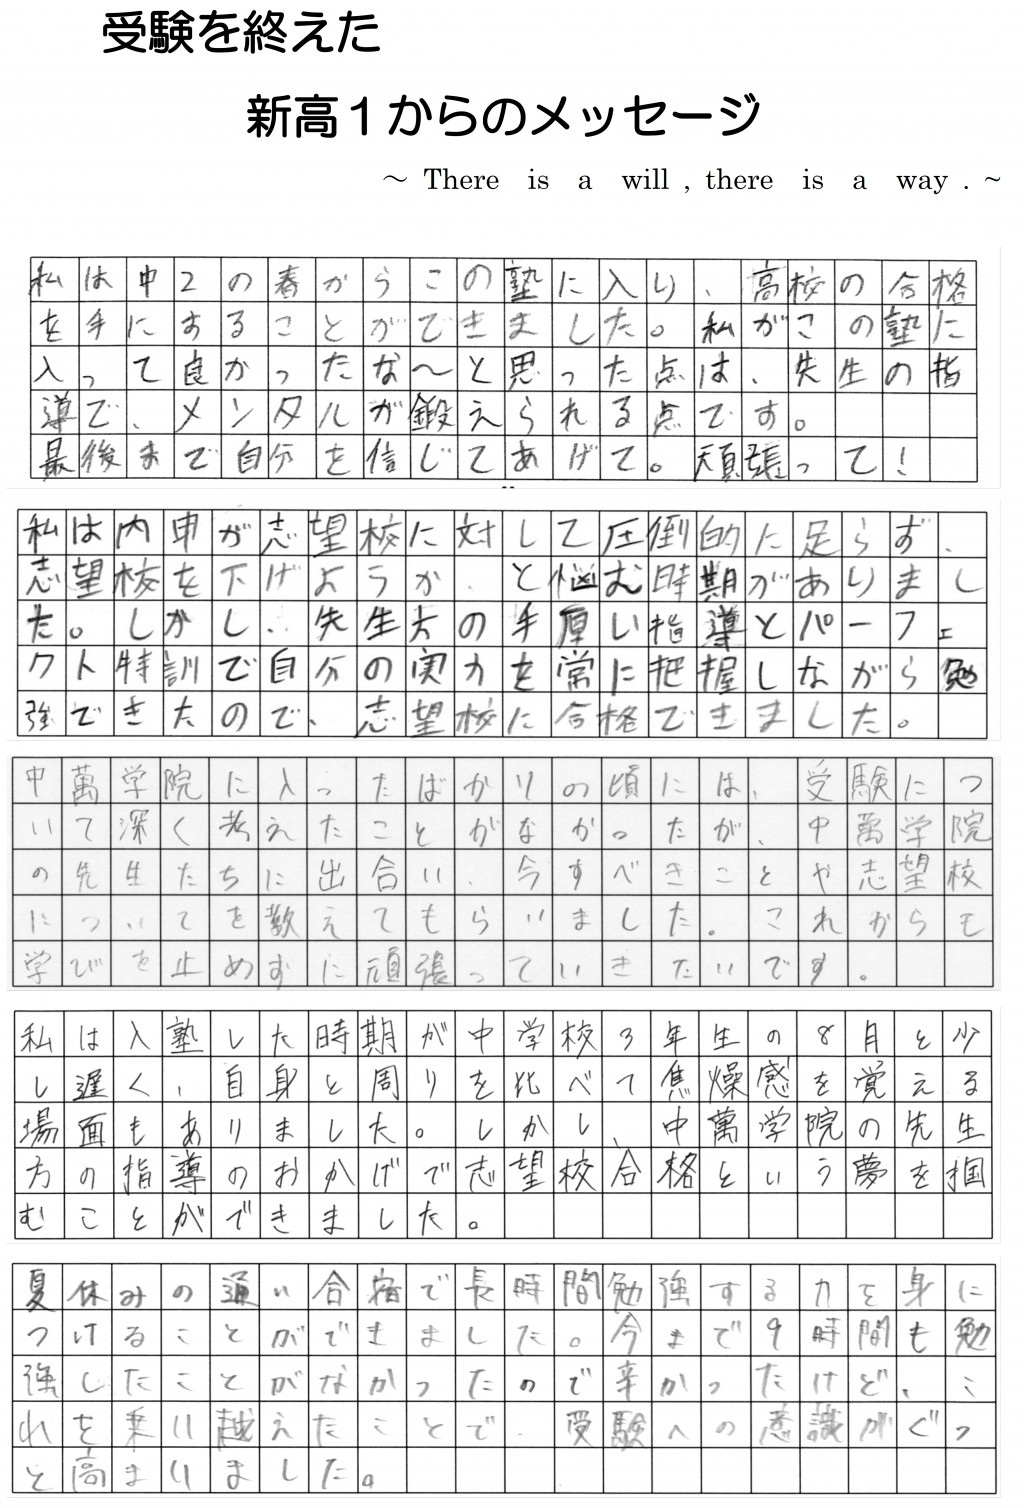 受験を終えた
新高１からのメッセージ
～ There is a will , there is a way . ~
私は中2の春からこの塾に入り、高校の合格
を手にすることができました。私がこの塾に
入って良かったな～と思った点は、先生の指
導で、メンタルが鍛えられる点です。
最後まで自分を信じてあげて。頑張って!
私は内申が志望校に対して圧倒的に足らず、
志望校を下げようか、と悩む時期がありまし
た。しかし、先生方の手厚い指導とパーフェ
クト特訓で自分の実力を常に把握しながら勉
強できたので、志望校に合格できました。
中萬学院に入ったばかりの頃には、受験につ
いて深く考えたことがなかったが、中萬学院
の先生たちに出合い、今すべきことや志望校
についてを教えてもらいました。これからも
学びを止めずに頑張っていきたいです。
私は入塾した時期が中学校3年生の8月と少
し遅く、自身と周りを比べて焦燥感を覚える
場面もありました。しかし、中萬学院の先生
方の指導のおかげで志望校合格という夢を掴
むことができました。
夏休みの通い合宿で長時間勉強する力を身に
つけることができました。今まで9時間も勉
強したことがなかったので辛かったけど、こ
れを乗り越えたことで、受験への意識がぐっ
と高まりました。